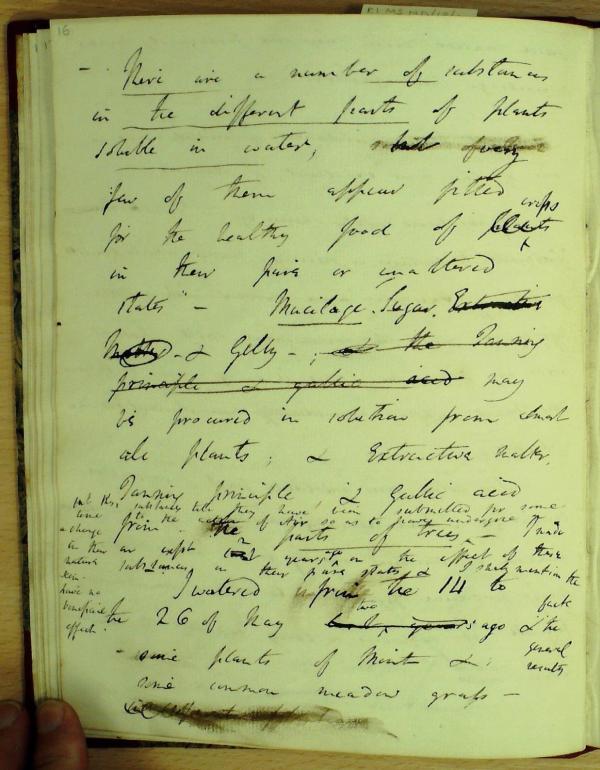 16
- There are a number of substances
in the different parts of plants
soluble in water, but every
few of them appear fitted
for the healthy food of plants crops
in their pure or unaltered
states - Mucilage. Sugar. Extractive
Matter - & Gelly - ; & the Tanning
principle & gallic acid may
be procured in solution from almost
all plants ; & Extractive matter,
Tanning principle & Gallic acid
from the parts of trees. -
but these substances till they have been submitted for some
time to the action of Air so as to undergo
a change
in their
nature
have no
beneficial
effect.
I made
an expt years ago on the effect of these
substances in their pure states & I shall mention the
fact
& the
general
results
I watered from the 14 to
the 26 of May two years ago
- some plants of Mint &
some common meadow grass -